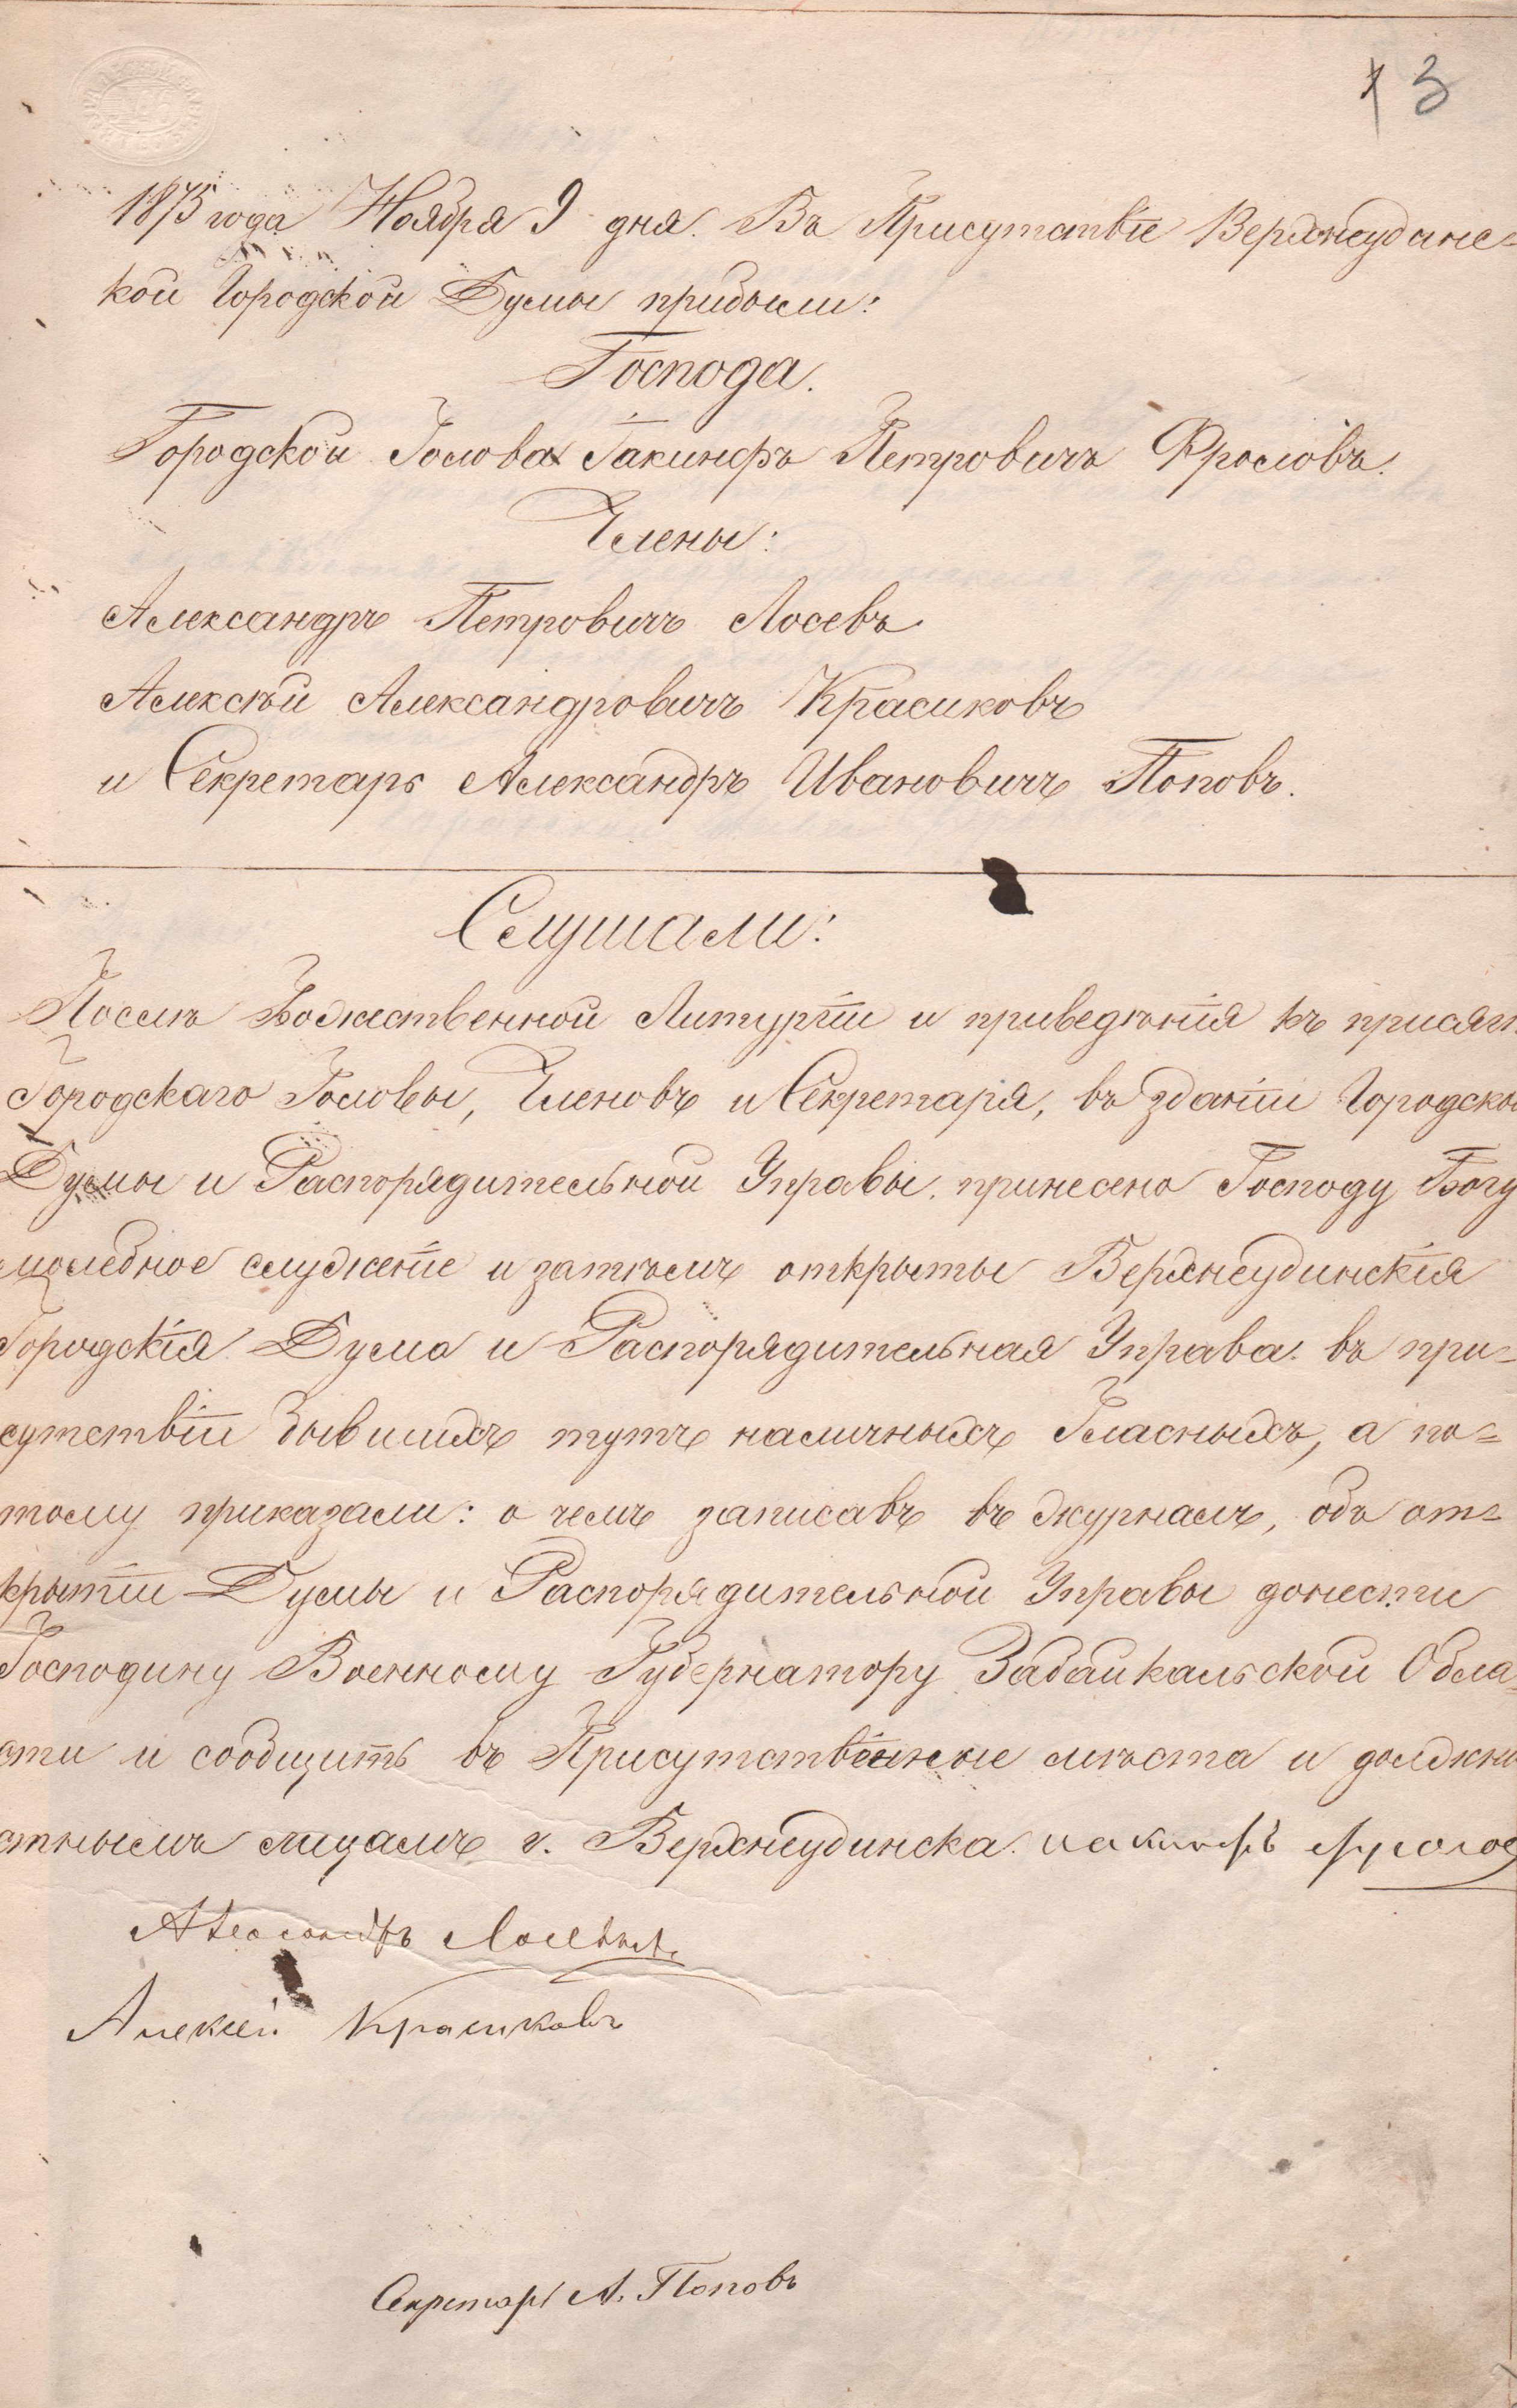 13
1875 года Ноября 9 дня. Въ Присутствіе Верхнеудинс=
кой Городской Думы прибыли:
Господа.
Городской Голова Іакинфъ Петровичъ Фроловъ.
Члены:
Александръ Петровичъ Лосевъ
Алексѣй Александровичъ Красиковъ
и Секретарь Александръ Ивановичъ Поповъ.
Слушали:
Послѣ Божественной Литургіи и приведѣнія къ присяг
Городскаго Головы, Членовъ и Секретаря, въ зданіи Городской
Думы и Распорядительной Управы. принесено Господу Богу
молебное служеніе и затѣмъ открыты Верхнеудинскія
Городскія Дума и Распорядительная Управа. въ при=
сутствіи бывшихъ тутъ наличныхъ Гласныхъ, а по=
тому приказали: о чемъ записавъ въ журналъ, объ от=
крытіи Думы и Распорядительной Управы донести
Господину Военному Губернатору Забайкальской Обла=
сти и сообщить въ Присутственные мѣста и должно
стнымъ лицамъ г. Верхнеудинска. Иакинфъ Фролов
Александръ Лосевъ
Алексѣй Красиковъ
Секретарь А. Поповъ